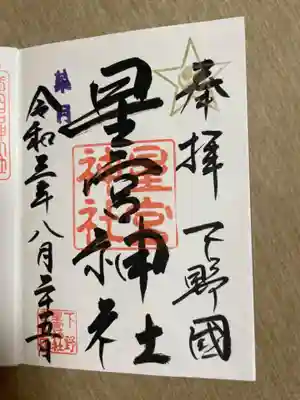 奉拝 下野國
星宮神社
星宮
神社
葉月
令和三年八月二十五日